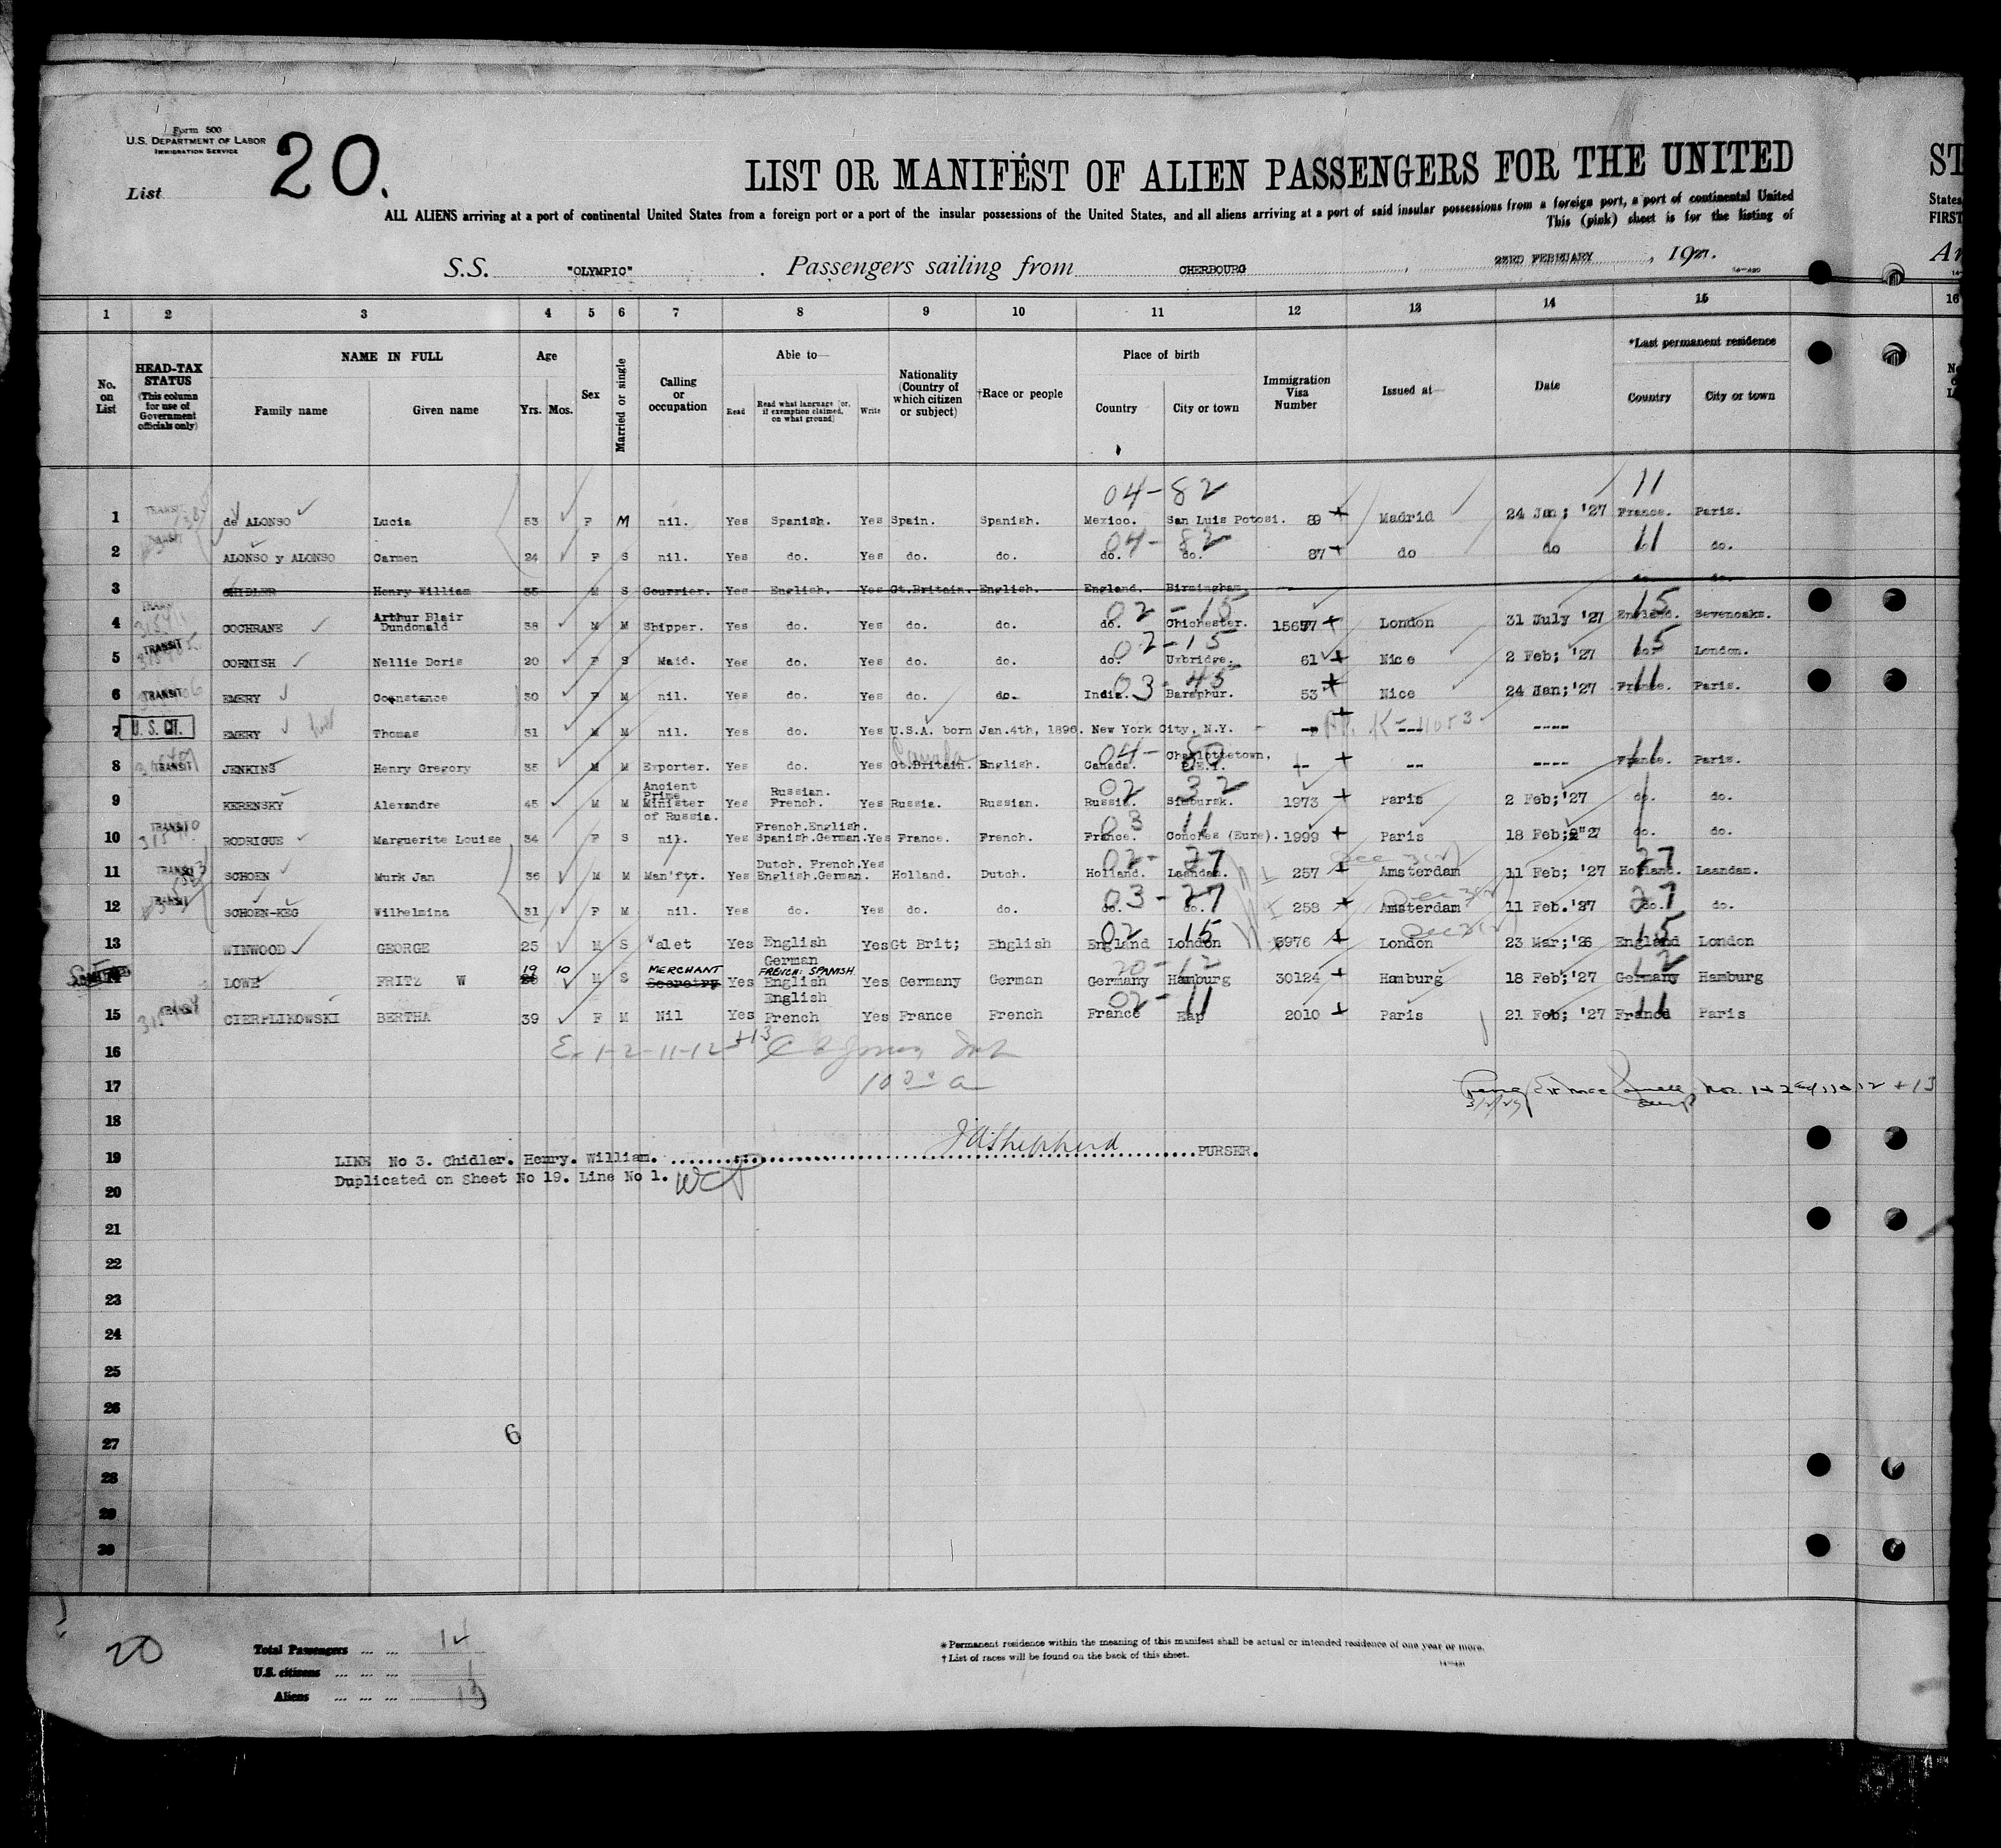 Form 500
U.S. DEPARTMENT OF LABOR
IMMIGRATION SERVICE
List 20.
LIST OR MANIFEST OF ALIEN PASSENGERS FOR THE UNITED ST
ALL ALIENS arriving at a port of continental United States from a foreign port or a port of the insular possessions of the United States, and all aliens arriving at a port of said insular possessions from a foreign port, a port of continental United States
This (pink) sheet is for the listing of FIRST
S.S. "OLYMPIC". Passengers sailing from CHERBOURG, 23RD FEBRUARY, 1927.
1 2 3 4 5 6 7 8 9 10 11 12 13 14 15 16
No. on List
HEAD-TAX STATUS (This column for use of Government officials only)
NAME IN FULL Family name Given name
Age Yrs. Mos.
Sex
Married or single
Calling or occupation
Able to— Read Read what language (or, if exemption claimed, on what ground) Write
Nationality (Country of which citizen or subject)
†Race or people
Place of birth Country City or town
Immigration Visa Number
Issued at—
Date
*Last permanent residence Country City or town
04-82 11
1 TRANSIT de ALONSO Lucia 53 F M nil. Yes Spanish. Yes Spain. Spanish. Mexico. San Luis Potosi. 89 Madrid 24 Jan; '27 France. Paris.
04-82 11
2 ALONSO y ALONSO Carmen 24 F S nil. Yes do. Yes do. do. do. do. 87 do do do. do.
3 CHIDLER Henry William 35 M S Courrier. Yes English. Yes Gt.Britain. English. England. Birmingham. do. do.
02-15 15
4 COCHRANE Arthur Blair Dundonald 38 M M Shipper. Yes do. Yes do. do. do. Chichester. London 31 July '27 England. Sevenoaks.
02-15 15
5 TRANSIT CORNISH Nellie Doris 20 F S Maid. Yes do. Yes do. do. do. Uxbridge. 61 Nice 2 Feb; '27 do. London.
03-45 11
6 TRANSIT EMERY Constance 30 F M nil. Yes do. Yes do. do. India. Baraphur. 53 Nice 24 Jan; '27 France. Paris.
7 U. S. CIT. EMERY Thomas 31 M M nil. Yes do. Yes U.S.A. born Jan.4th, 1896. New York City, N.Y. -- --- ----
Canada 04-80 11
8 TRANSIT JENKINS Henry Gregory 35 M M Exporter. Yes do. Yes Gt.Britain. English. Canada. Charlottetown, P.E.I. -- -- ---- France. Paris.
02 32
9 KERENSKY Alexandre 45 M M Ancient Prime Minister of Russia. Yes Russian. French. Yes Russia. Russian. Russia. Simbursk. 1973 Paris 2 Feb;'27 do. do.
03 11
10 TRANSIT RODRIGUE Marguerite Louise 34 F S nil. Yes French.English. Spanish.German. Yes France. French. France. Conches (Eure). 1999 Paris 18 Feb; '27 do. do.
02-27 27
11 TRANSIT SCHOEN Murk Jan 36 M M Man'ftr. Yes Dutch. French. English.German. Yes Holland. Dutch. Holland. Laandam. 257 Amsterdam 11 Feb; '27 Holland. Laandam.
03-27 27
12 TRANSIT SCHOEN-KEG Wilhelmina 31 F M nil. Yes do. Yes do. do. do. do. 258 Amsterdam 11 Feb.'27 do. do.
02 15 15
13 WINWOOD GEORGE 25 M S Valet Yes English Yes Gt Brit; English England London 5976 London 23 Mar;'26 England London
20-12 12
14 LOWE FRITZ W 19 10 M S MERCHANT Secretry Yes German FRENCH: SPANISH. English Yes Germany German Germany Hamburg 30124 Hamburg 18 Feb;'27 Germany Hamburg
02-11 11
15 TRANSIT CIERPLIKOWSKI BERTHA 39 F M Nil Yes English French Yes France French France Eap 2010 Paris 21 Feb; '27 France Paris
16 1-2-11-12+13
17
18
19 LINE No 3. Chidler. Henry. William. JA Shepherd PURSER.
Duplicated on Sheet No 19. Line No 1.
20
21
22
23
24
25
26
27
6
28
29
30
20
Total Passengers ... ... 14
U.S. citizens ... ... ... 1
Aliens ... ... ... 13
*Permanent residence within the meaning of this manifest shall be actual or intended residence of one year or more.
†List of races will be found on the back of this sheet.